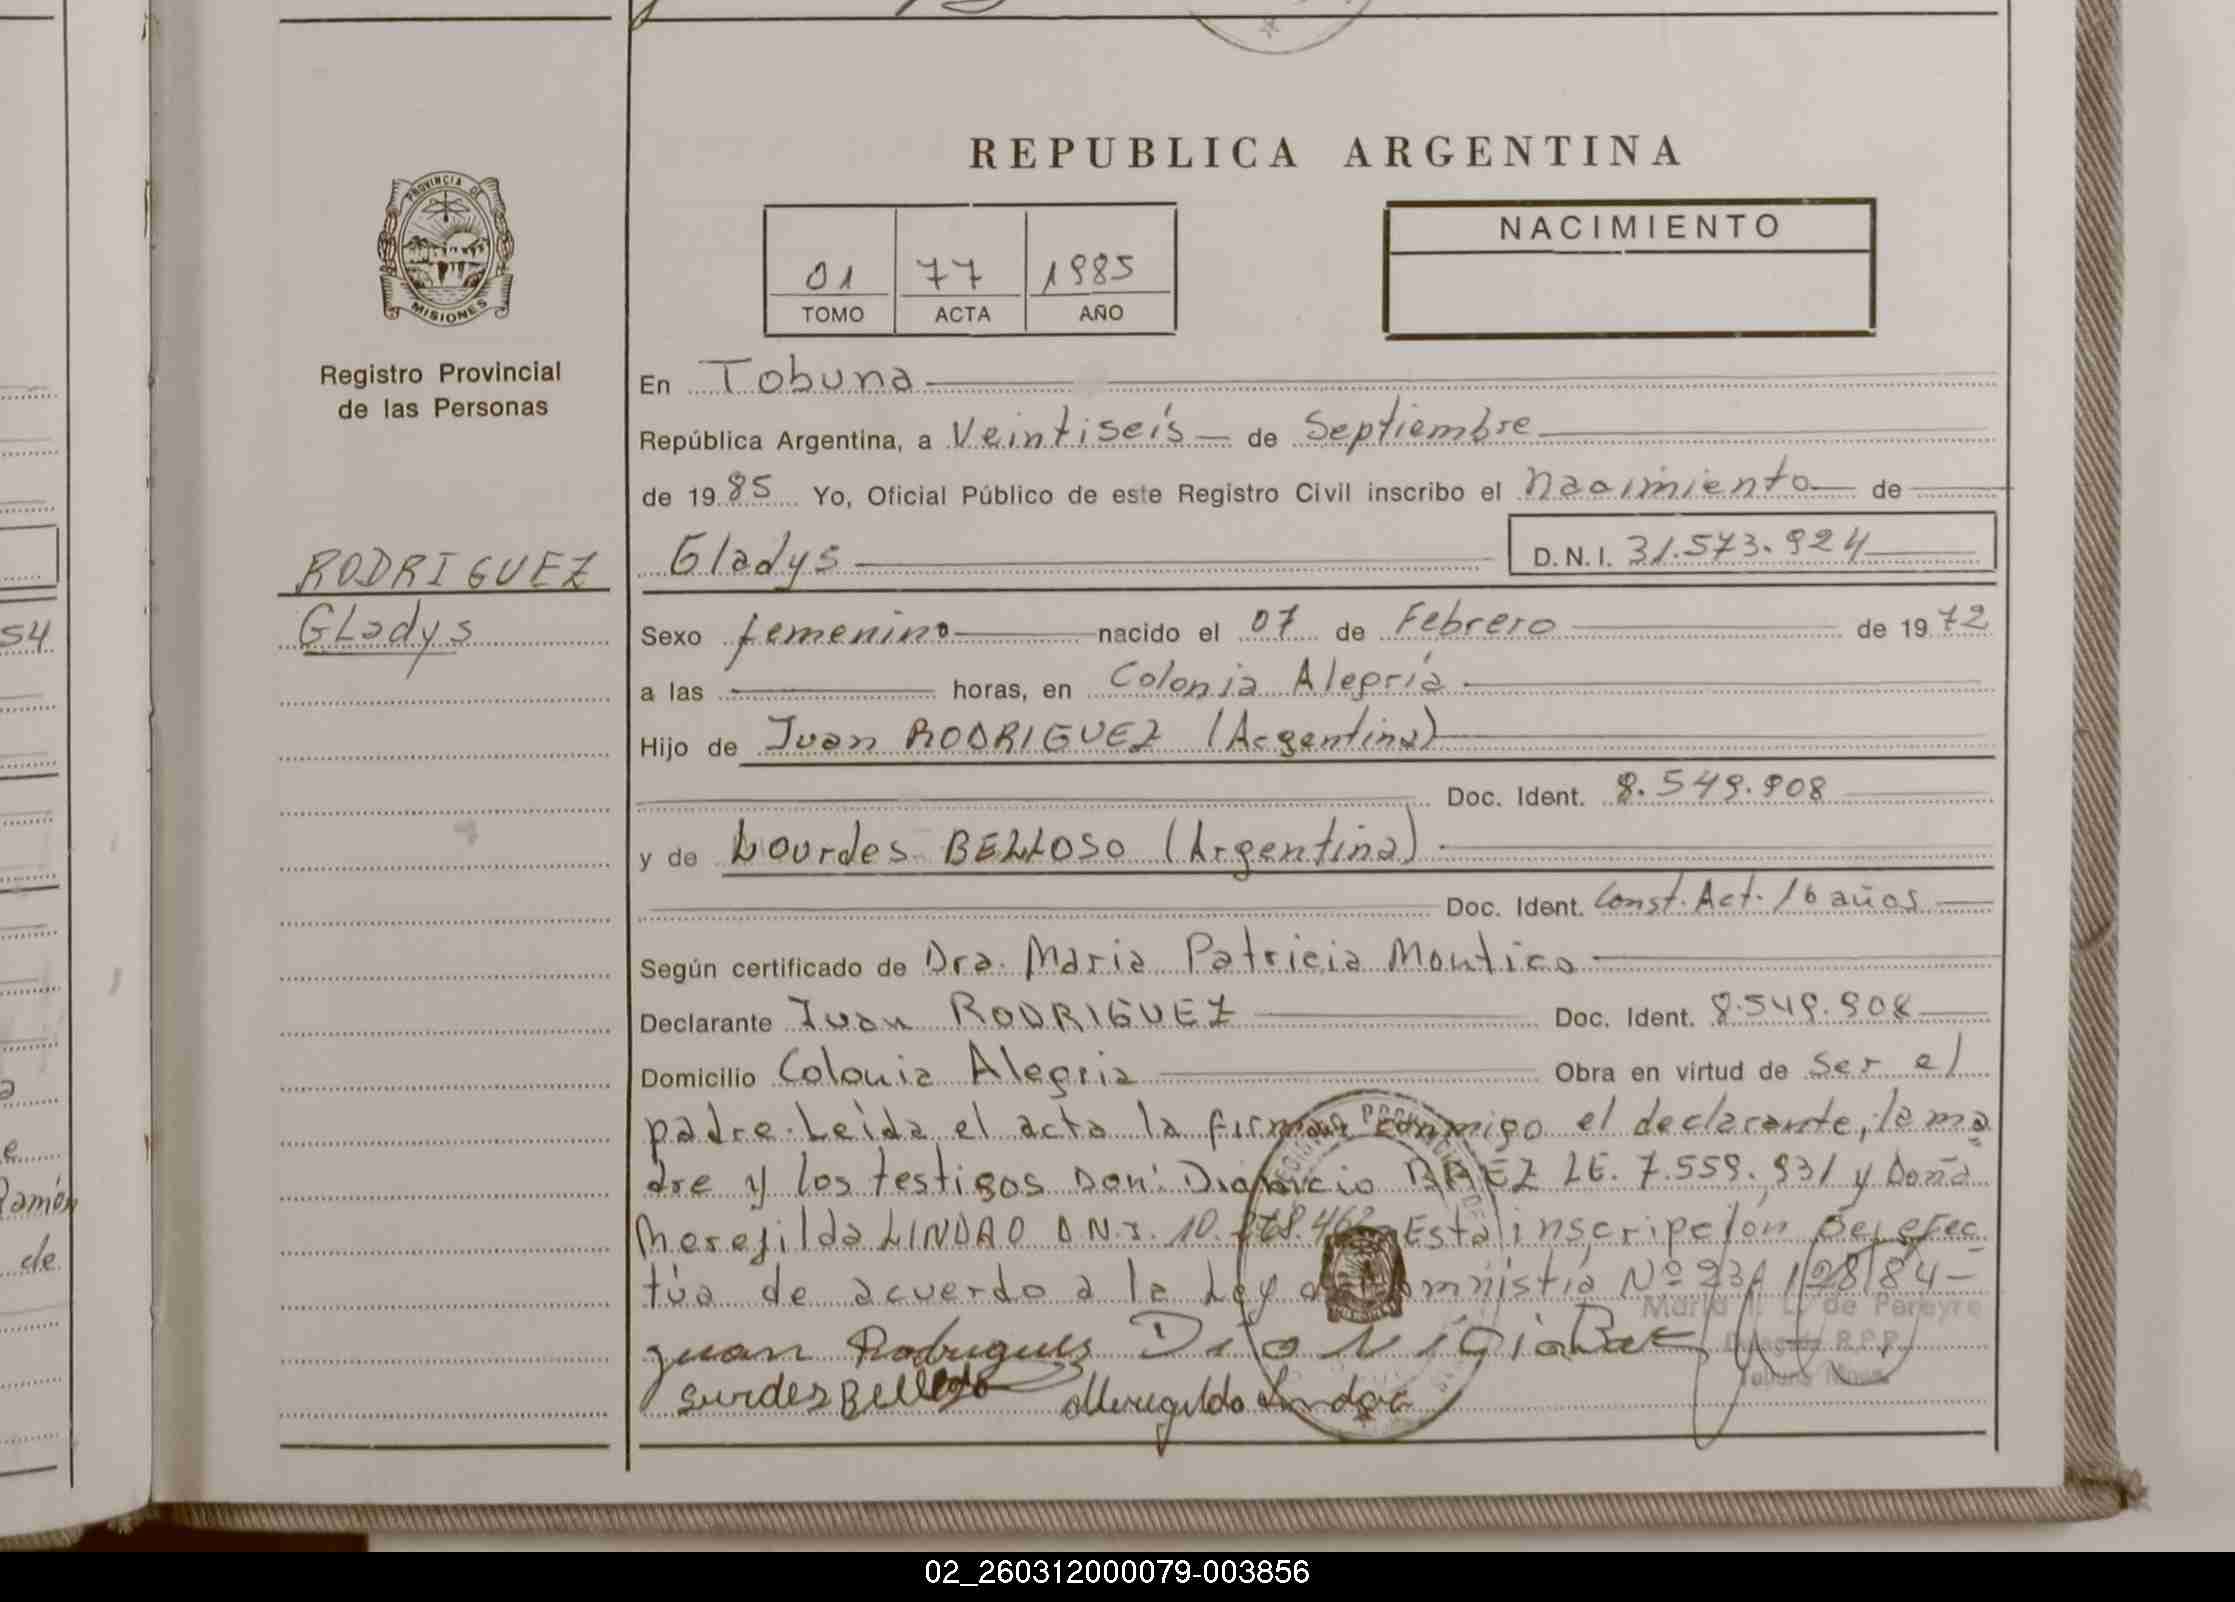 REPUBLICA ARGENTINA
PROVINCIA DE
MISIONES
Registro Provincial
de las Personas
RODRIGUEZ
GLadys
01 77 1985
TOMO ACTA AÑO
NACIMIENTO
En Tobuna
República Argentina, a Veintiseís de Septiembre
de 1985 Yo, Oficial Público de este Registro Civil inscribo el nacimiento de
Gladys D.N.I. 31.573.924
Sexo femenino nacido el 07 de Febrero de 1972
a las horas, en Colonia Alegría
Hijo de Juan RODRIGUEZ (Argentina)
Doc. Ident. 8.549.908
y de Lourdes BELLOSO (Argentina)
Doc. Ident. Const. Act. 16 años
Según certificado de Dra. Maria Patricia
Declarante Juan RODRIGUEZ Doc. Ident. 8.549.908
Domicilio Colonia Alegria Obra en virtud de ser el
padre. Leída el acta la firman conmigo el declarante, la ma
dre y los testigos Don: BAEZ LE. 7.559.931 y Doña
Merejilda LINDAO D.N.I. Esta inscripción se efec
túa de acuerdo a la Ley de Amnistía Nº
Juan Rodrigues
Maria L. de Pereyre
Delegada R.P.P.
02_260312000079-003856
54
Ramón
de